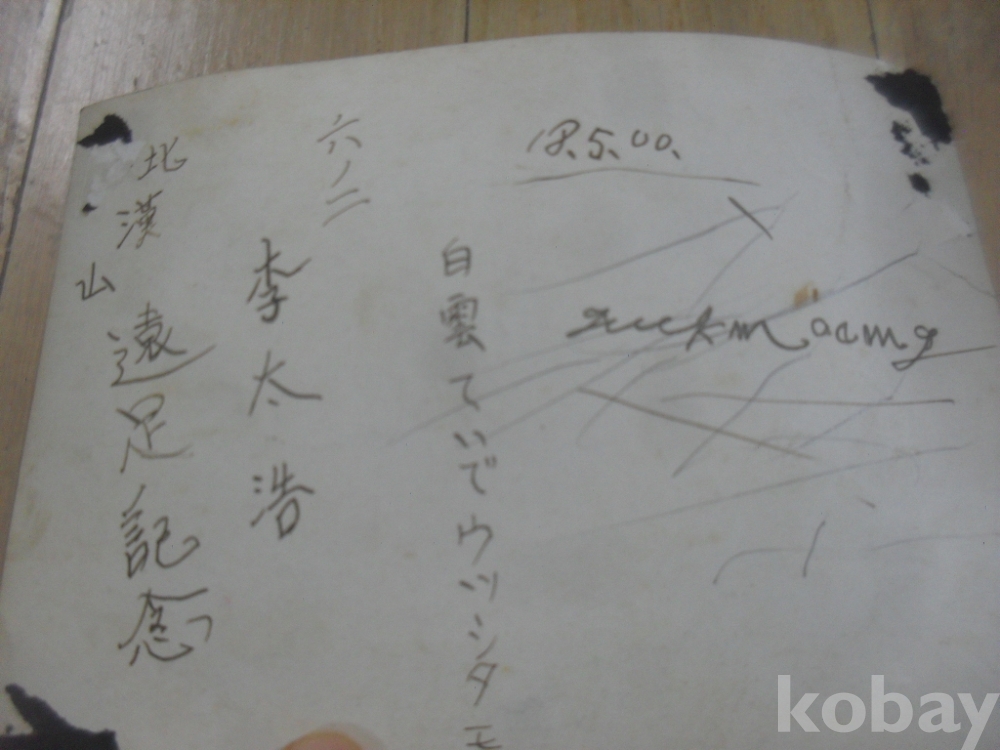 18.5.00.
白雲ていでウツシタモ
六ノ二
李太浩
北漢山遠足記念
kobay